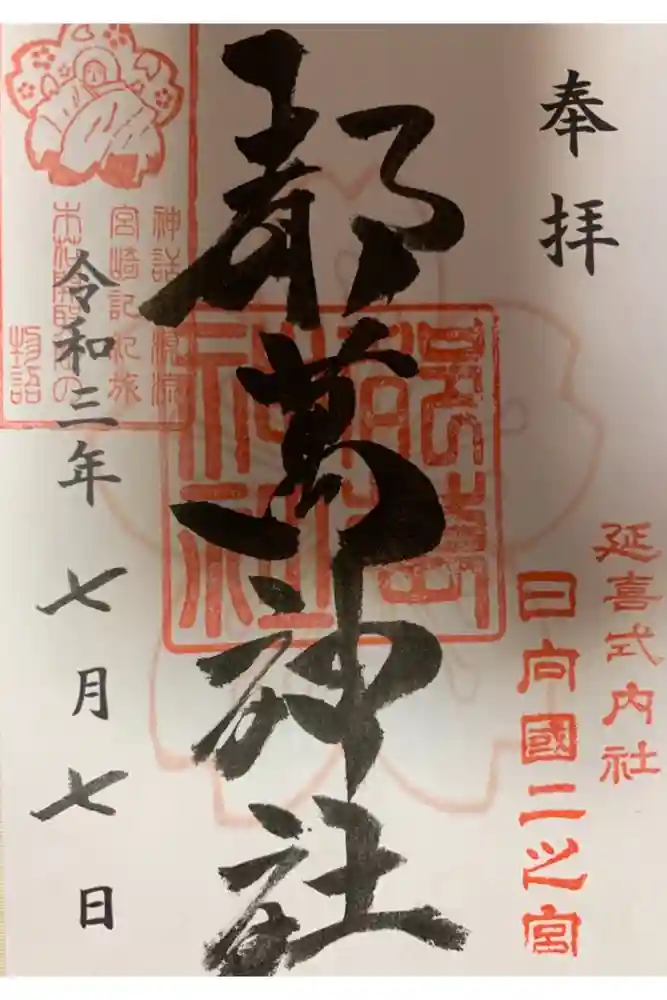 奉拝
延喜式内社
日向國二之宮
都萬神社
神話の源流
宮崎記紀旅
木花開耶姫の
物語
令和三年七月七日